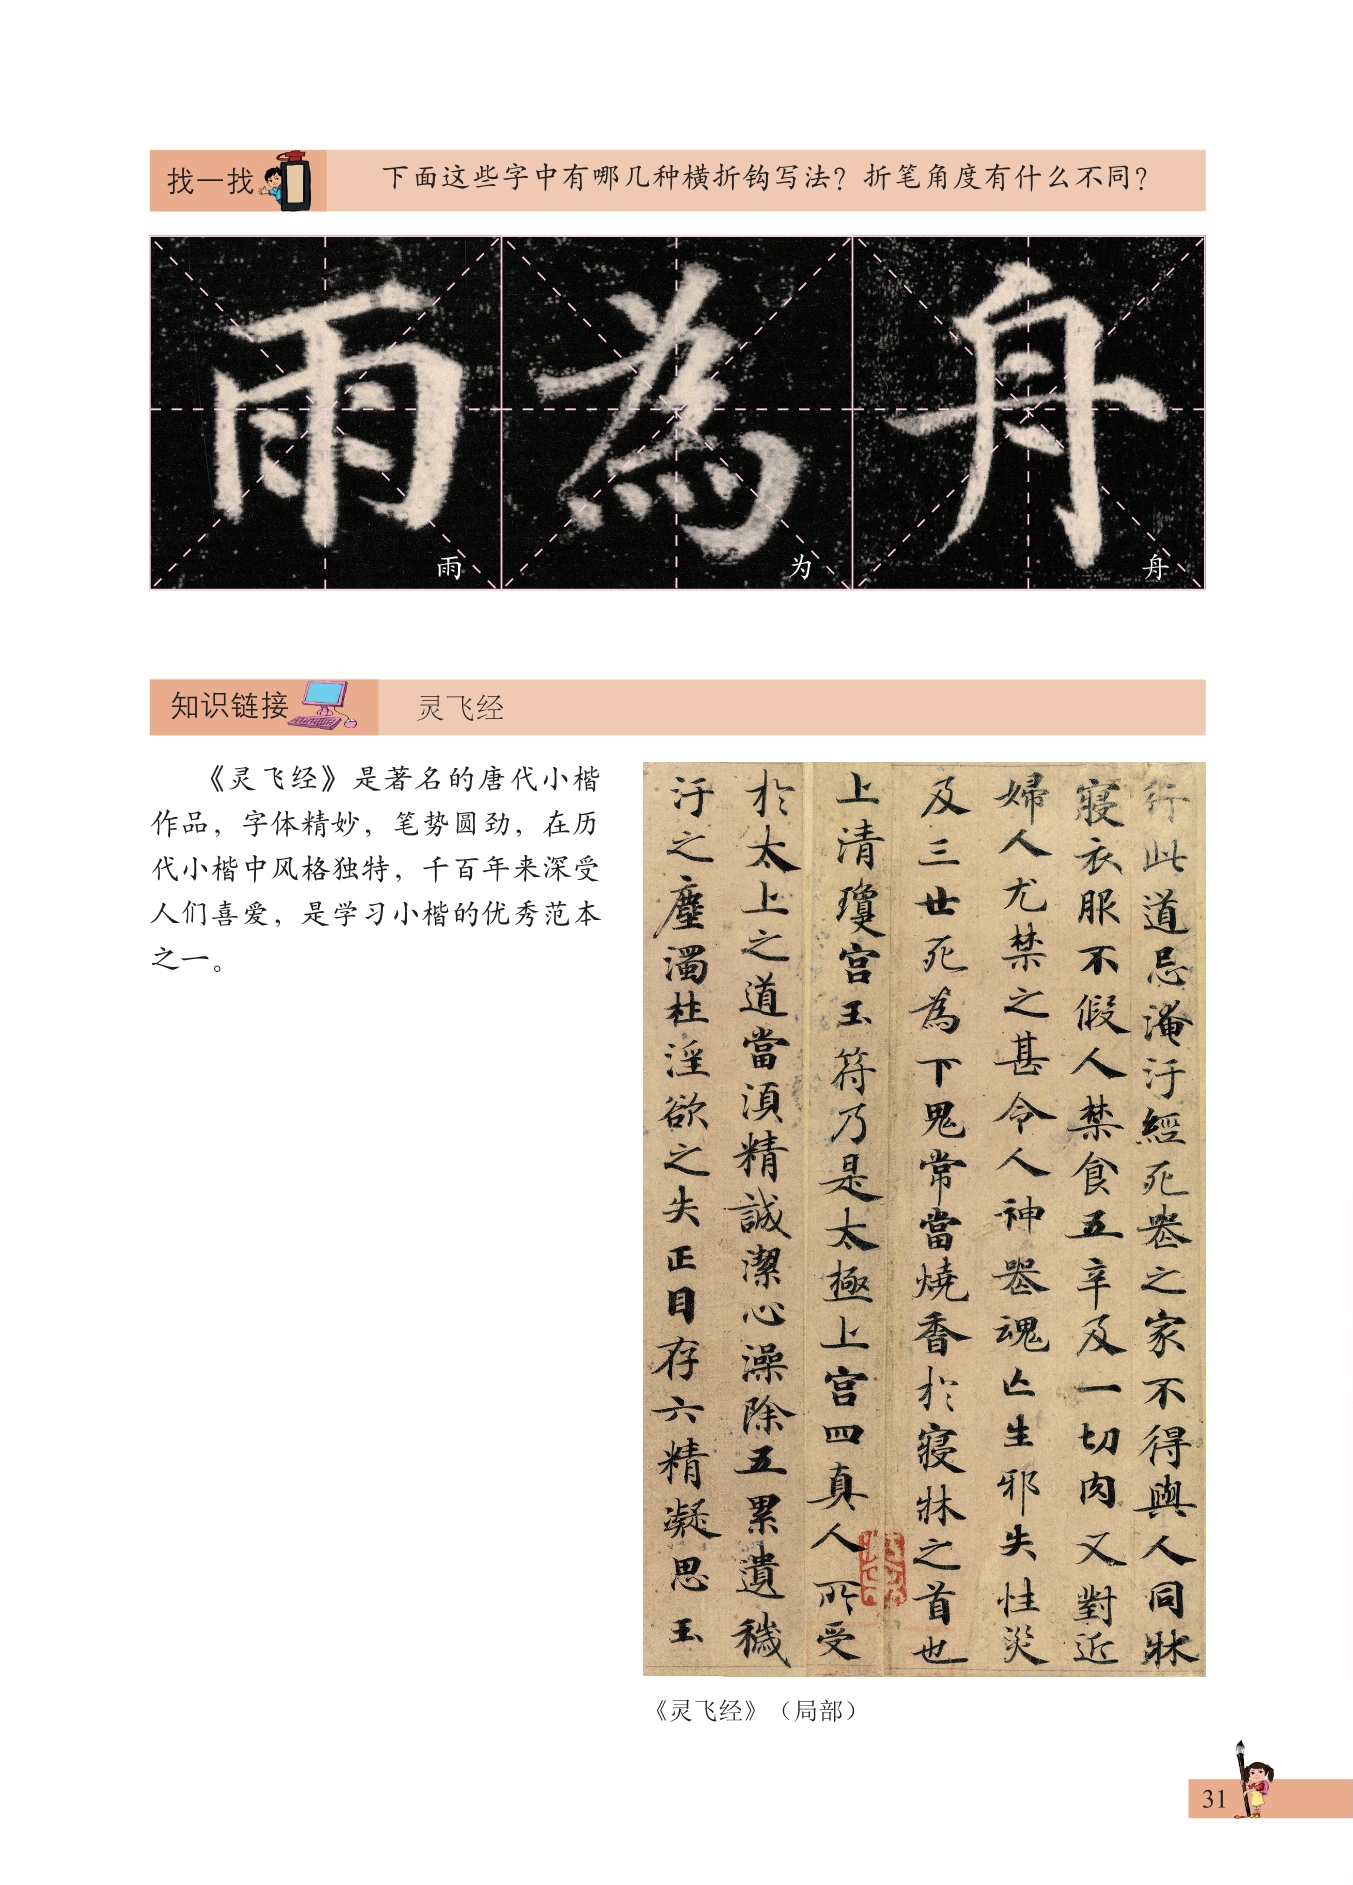 找一找
下面这些字中有哪几种横折钩写法？折笔角度有什么不同？
雨 為 舟
雨 为 舟
知识链接
灵飞经
《灵飞经》是著名的唐代小楷
作品，字体精妙，笔势圆劲，在历
代小楷中风格独特，千百年来深受
人们喜爱，是学习小楷的优秀范本
之一。
行此道忌淹汙經死喪之家不得與人同牀
寢衣服不假人禁食五辛及一切肉又對近
婦人尤禁之甚令人神喪魂亡生邪失性災
及三世死為下鬼常當燒香於寢牀之首也
上清瓊宮玉符乃是太極上宮四真人所受
於太上之道當須精誠潔心澡除五累遺穢
汙之塵濁杜淫欲之失正目存六精凝思玉
《灵飞经》（局部）
31